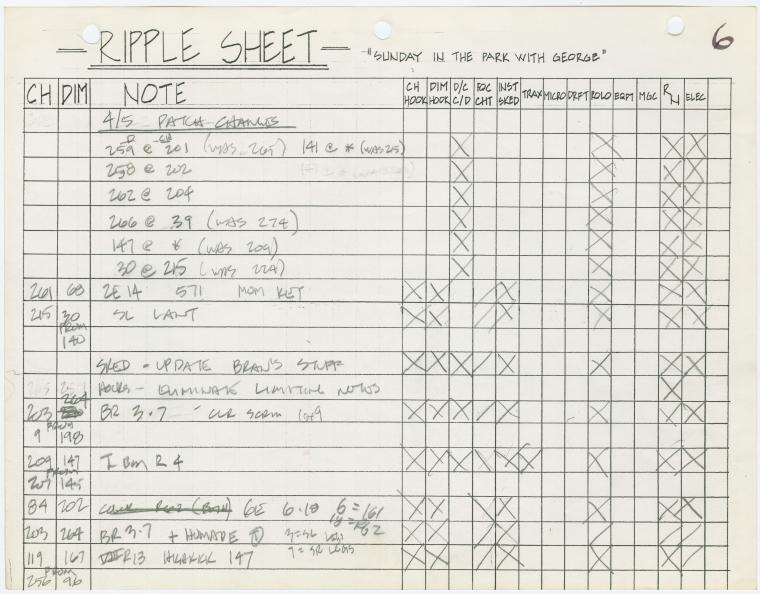 RIPPLE SHEET
"SUNDAY IN THE PARK WITH GEORGE"
6
CH DIM NOTE CH HOOK DIM HOOK D/C C/D FOC CHT INST SKED TRAX MICRO DRFT ROLO EQPT MGC RN ELEC
4/5 PATCH CHANGES
D CH
259 @ 201 (WAS 265) 141 @ * (WAS 25) X X X X
258 @ 202 X X X X
262 @ 204 X X X X
266 @ 39 (WAS 274) X X X X
147 @ * (WAS 209) X X X X
30 @ 215 (WAS 229) X X X X
261 68 2E 14 571 MOM KET X X / X X X X
215 30 SL LANT X X / X X X X
FROM
140
SKED - UPDATE BRAN'S STUFF X X / X X X X
HOOKS - ELIMINATE LIMITING NOTES X
264
203 BR 3.7 CLR SCRIM X X X / X X X X
FROM
9 198
209 147 I Bm R 4 X X X / X X X X X
FROM
207 145
84 202 6E 6.18 6 = 161 X X X X X X X
18 = 162
203 264 BR 3.7 + HOMADE X X X X X / /
3 = SL LEGS
119 167 R13 147 X X X X X X X
7 = SR LEGS
FROM
256 96